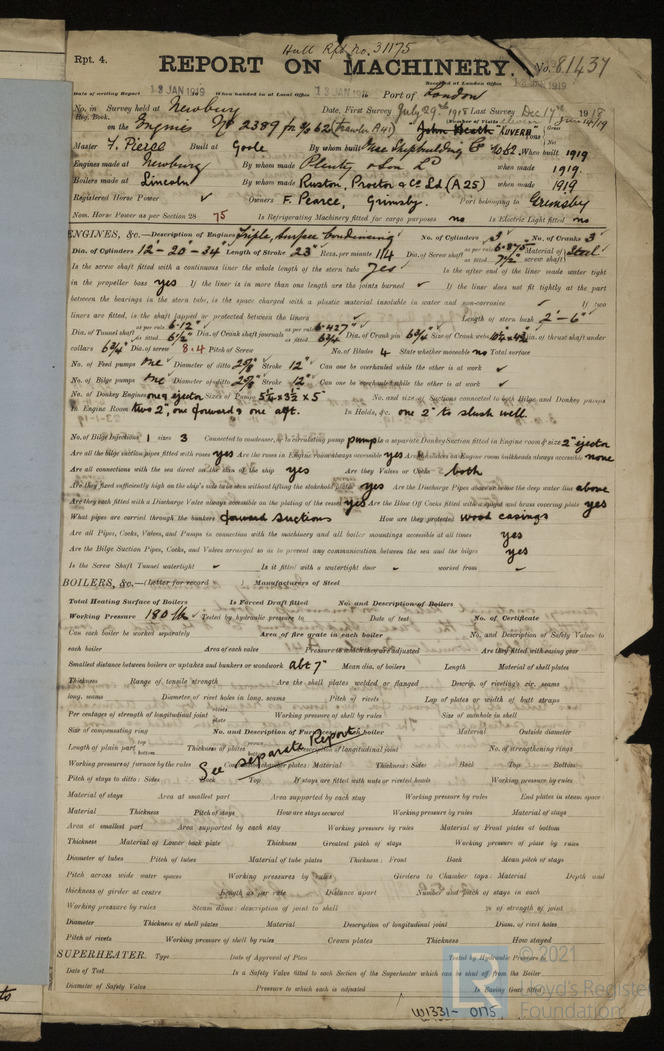 Hull Rpt. no. 31175
Rpt. 4.
REPORT ON MACHINERY.
No. 81437
Date of writing Report 13 JAN 1919 When handed in at Local Office 13 JAN 1919 Port of London
Received at London Office
No. in Survey held at Newbury Date, First Survey July 29th 1918 Last Survey Dec 17th 1918
Reg. Book. (Number of Visits
on the Engines No 2389 for No 62 (Trawler A41) "John Heath" "LUVERA" Tons Gross Net
Master F. Pierce Built at Goole By whom built Goole Shipbuilding Co No 62 When built 1919
Engines made at Newbury By whom made Plenty & Son Ld when made 1919.
Boilers made at Lincoln By whom made Ruston, Proctor & Co Ld (A25) when made 1919
Registered Horse Power Owners F. Pearce, Grimsby. Port belonging to Grimsby
Nom. Horse Power as per Section 28 75 Is Refrigerating Machinery fitted for cargo purposes no Is Electric Light fitted no
ENGINES, &c.—Description of Engines Triple, Surface Condensing No. of Cylinders 3 No. of Cranks 3
Dia. of Cylinders 12"-20"-34" Length of Stroke 23" Revs. per minute 114 Dia. of Screw shaft as per rule 6.87" as fitted 7 1/2" Material of screw shaft Steel
Is the screw shaft fitted with a continuous liner the whole length of the stern tube Yes Is the after end of the liner made water tight
in the propeller boss yes If the liner is in more than one length are the joints burned ✓ If the liner does not fit tightly at the part
between the bearings in the stern tube, is the space charged with a plastic material insoluble in water and non-corrosive ✓ If two
liners are fitted, is the shaft lapped or protected between the liners Length of stern bush 2'-6"
Dia. of Tunnel shaft as per rule 6.12" as fitted 6 1/2" Dia. of Crank shaft journals as per rule 6.427" as fitted 6 3/4 Dia. of Crank pin 6 3/4" Size of Crank webs Dia. of thrust shaft under
collars 6 3/4" Dia. of screw 8.4 Pitch of Screw No. of Blades 4 State whether moveable no Total surface
No. of Feed pumps one Diameter of ditto 2 5/8" Stroke 12" Can one be overhauled while the other is at work ✓
No. of Bilge pumps one Diameter of ditto 2 5/8" Stroke 12" Can one be overhauled while the other is at work ✓
No. of Donkey Engines one & ejector Sizes of Pumps 5 1/4 x 3 1/2 x 5" No. and size of Suctions connected to both Bilge and Donkey pumps
In Engine Room two 2", one forward & one aft. In Holds, &c. one 2" to slush well
No. of Bilge Injections 1 sizes 3 Connected to condenser, or to circulating pump pump Is a separate Donkey Suction fitted in Engine room & size 2" ejector
Are all the bilge suction pipes fitted with roses yes Are the roses in Engine room always accessible yes Are the sluices on Engine room bulkheads always accessible none
Are all connections with the sea direct on the skin of the ship yes Are they Valves or Cocks both
Are they fixed sufficiently high on the ship's side to be seen without lifting the stokehold plates yes Are the Discharge Pipes above or below the deep water line above
Are they each fitted with a Discharge Valve always accessible on the plating of the vessel yes Are the Blow Off Cocks fitted with a spigot and brass covering plate yes
What pipes are carried through the bunkers forward suctions How are they protected wood casings
Are all Pipes, Cocks, Valves, and Pumps in connection with the machinery and all boiler mountings accessible at all times yes
Are the Bilge Suction Pipes, Cocks, and Valves arranged so as to prevent any communication between the sea and the bilges yes
Is the Screw Shaft Tunnel watertight ✓ Is it fitted with a watertight door ✓ worked from ✓
BOILERS, &c.—(Letter for record ) Manufacturers of Steel
Total Heating Surface of Boilers Is Forced Draft fitted No. and Description of Boilers
Working Pressure 180 lb Tested by hydraulic pressure to Date of test No. of Certificate
Can each boiler be worked separately Area of fire grate in each boiler No. and Description of Safety Valves to
each boiler Area of each valve Pressure to which they are adjusted Are they fitted with easing gear
Smallest distance between boilers or uptakes and bunkers or woodwork abt 7" Mean dia. of boilers Length Material of shell plates
Thickness Range of tensile strength Are the shell plates welded or flanged Descrip. of riveting: cir. seams
long. seams Diameter of rivet holes in long. seams Pitch of rivets Lap of plates or width of butt straps
Per centages of strength of longitudinal joint rivets plate Working pressure of shell by rules Size of manhole in shell
Size of compensating ring No. and Description of Furnaces in each boiler Material Outside diameter
Length of plain part top bottom Thickness of plates crown bottom Description of longitudinal joint No. of strengthening rings
See separate Report
Working pressure of furnace by the rules Combustion chamber plates: Material Thickness: Sides Back Top Bottom
Pitch of stays to ditto: Sides Back Top If stays are fitted with nuts or riveted heads Working pressure by rules
Material of stays Area at smallest part Area supported by each stay Working pressure by rules End plates in steam space:
Material Thickness Pitch of stays How are stays secured Working pressure by rules Material of stays
Area at smallest part Area supported by each stay Working pressure by rules Material of Front plates at bottom
Thickness Material of Lower back plate Thickness Greatest pitch of stays Working pressure of plate by rules
Diameter of tubes Pitch of tubes Material of tube plates Thickness: Front Back Mean pitch of stays
Pitch across wide water spaces Working pressures by rules Girders to Chamber tops: Material Depth and
thickness of girder at centre Length as per rule Distance apart Number and pitch of stays in each
Working pressure by rules Steam dome: description of joint to shell % of strength of joint
Diameter Thickness of shell plates Material Description of longitudinal joint Diam. of rivet holes
Pitch of rivets Working pressure of shell by rules Crown plates Thickness How stayed
SUPERHEATER. Type Date of Approval of Plan Tested by Hydraulic Pressure to
Date of Test Is a Safety Valve fitted to each Section of the Superheater which can be shut off from the Boiler
Diameter of Safety Valve Pressure to which each is adjusted Is Easing Gear fitted
W1331-0175
© 2021
Lloyd's Register
Foundation
LR